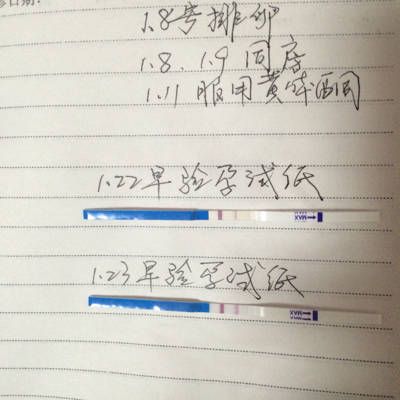 日期:
1.8号排卵
1.8、1.9同房
1.11服用黄体酮
1.22早验孕试纸
MAX
1.23早验孕试纸
MAX